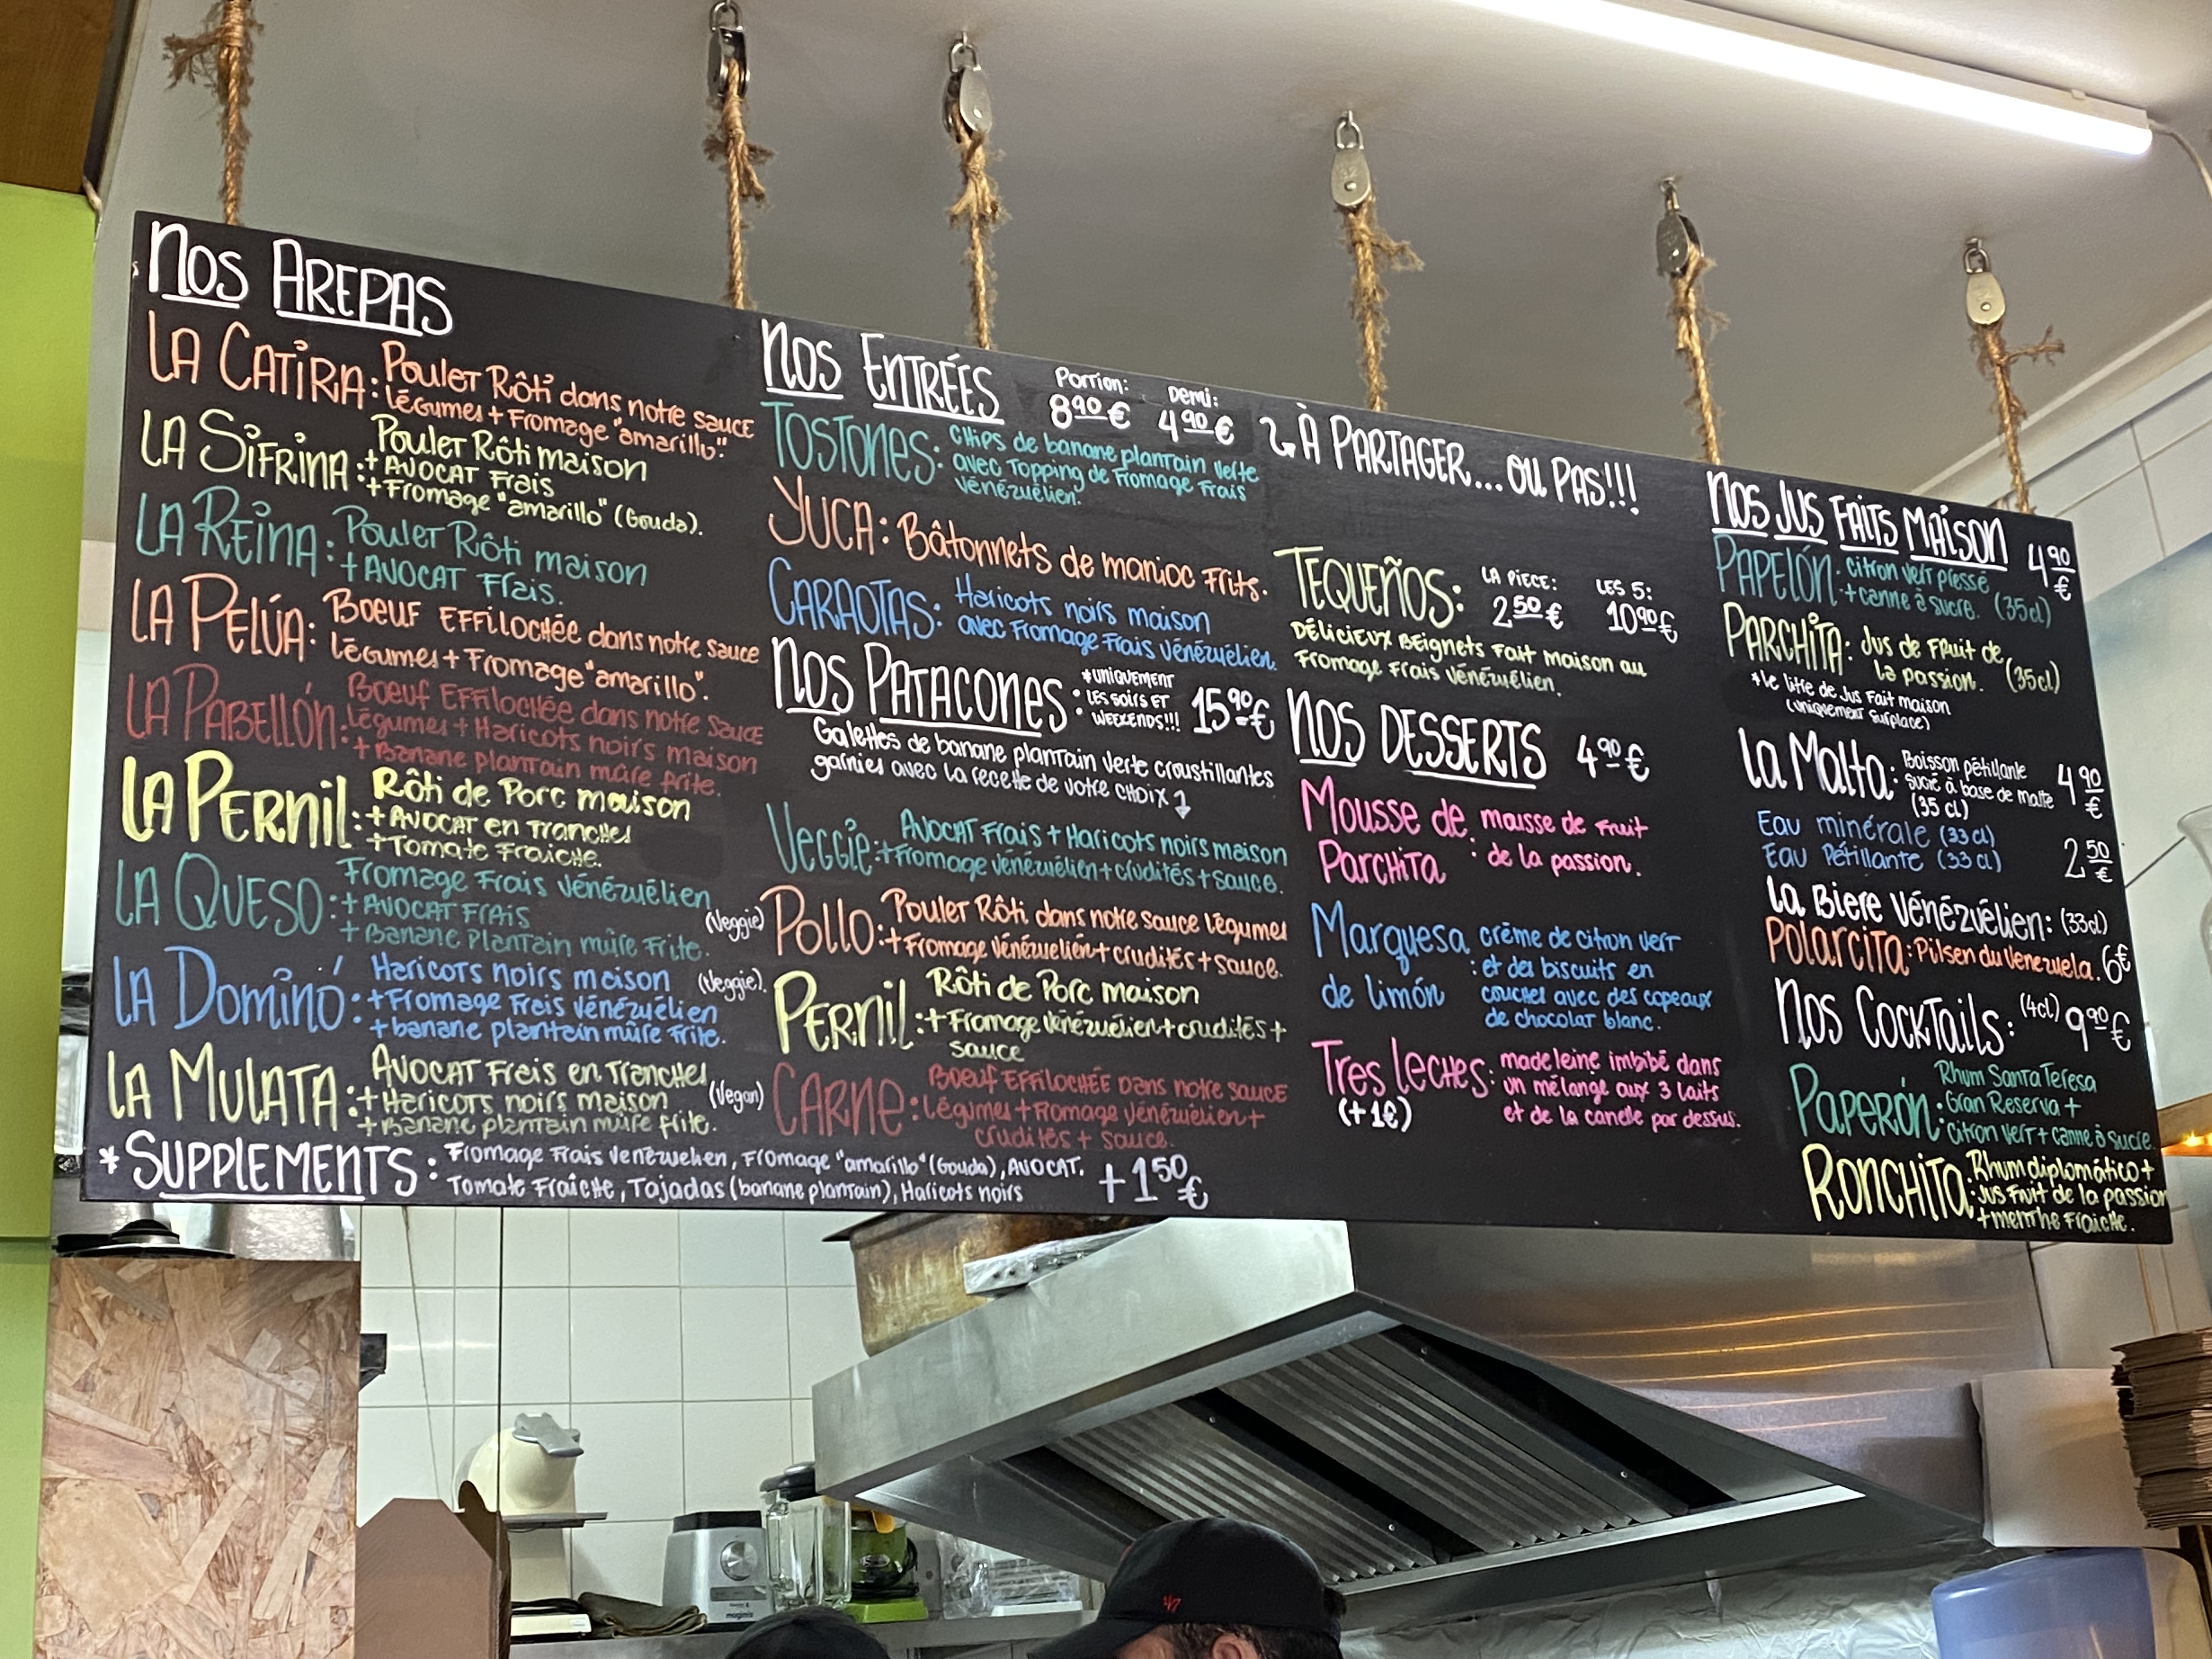 Nos Arepas
La Catira: Poulet Rôti dans notre sauce
légumes + Fromage "amarillo".
La Sifrina: Poulet Rôti maison
+ Avocat Frais
+ Fromage "amarillo" (Gouda).
La Reina: Poulet Rôti maison
+ Avocat Frais.
La Pelúa: Boeuf Effilochée dans notre sauce
légumes + Fromage "amarillo".
La Pabellón: Boeuf Effilochée dans notre sauce
légumes + Haricots noirs maison
+ Banane plantain mûre frite.
La Pernil: Rôti de Porc maison
+ Avocat en Tranches
+ Tomate Fraiche.
La Queso: Fromage Frais Vénézuélien
+ Avocat Frais
+ Banane Plantain mûre Frite. (Veggie)
La Dominó: Haricots noirs maison (Veggie).
+ Fromage Frais Vénézuélien
+ banane plantain mûre Frite.
La Mulata: Avocat Frais en Tranches
+ Haricots noirs maison (Vegan)
+ Banane plantain mûre frite.
*Supplements: Fromage Frais Venezuelien, Fromage "amarillo" (Gouda), Avocat.
Tomate Fraîche, Tajadas (banane plantain), Haricots noirs
+1 50 €
Nos Entrées Portion: Demi:
8 90 € 4 90 €
Tostones: Chips de banane plantain verte
avec Topping de Fromage Frais
Vénézuélien.
Yuca: Bâtonnets de manioc Frits.
Caraotas: Haricots noirs maison
avec Fromage Frais Vénézuélien.
Nos Patacones: *uniquement
les soirs et
weekends!!! 15 90 €
Galettes de banane plantain verte croustillantes
garnies avec la recette de votre choix
Veggie: Avocat Frais + Haricots noirs maison
+ Fromage Vénézuélien + crudités + sauce.
Pollo: Poulet Rôti dans notre sauce légumes
+ Fromage Vénézuelién + crudités + sauce.
Pernil: Rôti de Porc maison
+ Fromage Vénézuélien + crudités +
sauce
Carne: Boeuf Effilochée dans notre sauce
légumes + Fromage Vénézuélien +
crudités + sauce.
À Partager... ou pas!!!
Tequeños: La piece: Les 5:
2 50 € 10 90 €
Délicieux Beignets Fait Maison au
Fromage Frais Vénézuélien.
Nos Desserts 4 90 €
Mousse de Parchita: mousse de fruit
de la passion.
Marquesa de limón: crème de citron vert
et des biscuits en
couches avec des copeaux
de chocolat blanc.
Tres leches: madeleine imbibé dans
(+1€) un mélange aux 3 laits
et de la canelle par dessus.
Nos Jus Faits Maison 4 90 €
Papelón: citron vert pressé
+ canne à sucre. (35cl)
Parchita: Jus de Fruit de
la passion. (35cl)
*Le litre de Jus Fait maison
(uniquement surplace)
La Malta: Boisson pétillante
sucré à base de malte
(35 cl) 4 90 €
Eau minérale (33 cl)
Eau Pétillante (33 cl) 2 50 €
La Biere Vénézuélien: (33cl)
Polarcita: Pilsen du Venezuela. 6€
Nos Cocktails: (4cl) 9 90 €
Paperón: Rhum Santa Teresa
Gran Reserva +
Citron vert + canne à sucre.
Ronchito: Rhum diplomático +
Jus Fruit de la passion
+ menthe Fraiche.
47
magimix